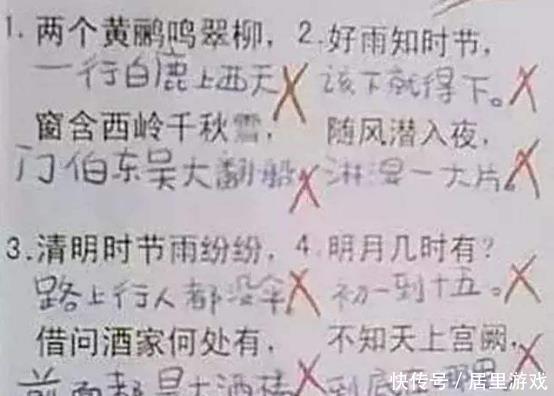 1. 两个黄鹂鸣翠柳，2. 好雨知时节，
一行白鹿上西天 该下就得下。
窗含西岭千秋雪， 随风潜入夜，
门伯东吴大翻船 淋湿一大片。
3. 清明时节雨纷纷，4. 明月几时有？
路上行人都没伞， 初一到十五。
借问酒家何处有， 不知天上宫阙，
前面都是大酒楼 到底
快传号／居里游戏